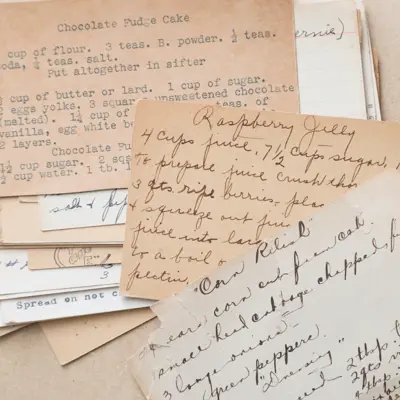 Chocolate Fudge Cake
cup of flour. 3 teas. B. powder. ½ teas.
soda, ¼ teas. salt.
Put altogether in sifter
cup of butter or lard. 1 cup of sugar.
eggs yolks. 3 squares unsweetened chocolate
(malted). 1¼ cup of teas. of
vanilla, egg white be
2 layers.
Chocolate Fu
1½ cup sugar. 2 sq
cup water. 1 tb.
ernie)
salt &
3
Spread on not
Raspberry Jelly
4 cups juice, 7½ cups sugar, 1
To prepare juice crush tho
3 qts ripe berries, plac
& squeeze out juic
juice into lar
to a boil o
pectin,
"Corn Relish"
ears corn cut from cob.
small head cabbage chopped f
3 large onions
green peppers
"Dressing"
2 tbsp
2 qts
4 tbsp